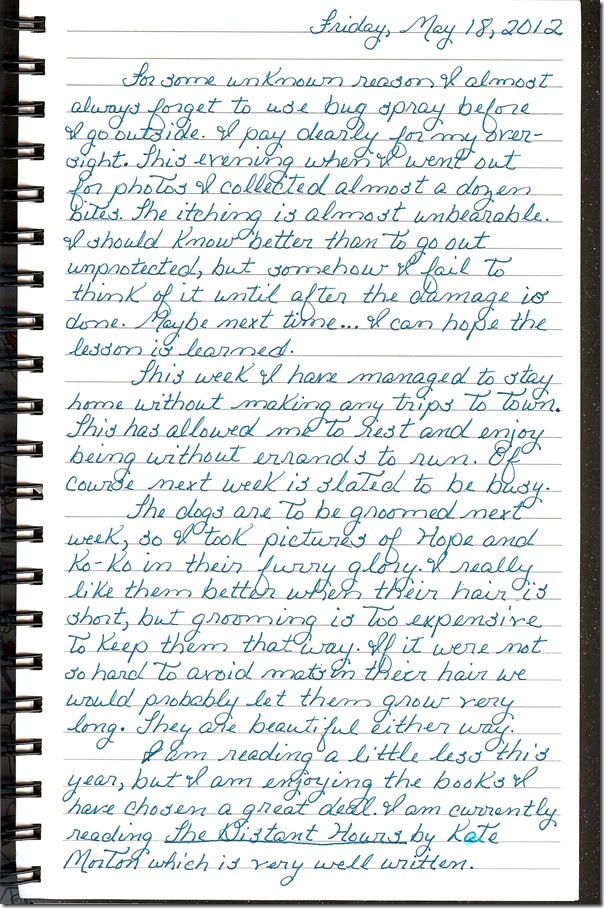 Friday, May 18, 2012
For some unknown reason I almost
always forget to use bug spray before
I go outside. I pay dearly for my over-
sight. This evening when I went out
for photos I collected almost a dozen
bites. The itching is almost unbearable.
I should know better than to go out
unprotected, but somehow I fail to
think of it until after the damage is
done. Maybe next time... I can hope the
lesson is learned.
This week I have managed to stay
home without making any trips to town.
This has allowed me to rest and enjoy
being without errands to run. Of
course next week is slated to be busy.
The dogs are to be groomed next
week, so I took pictures of Hope and
Ko-Ko in their furry glory. I really
like them better when their hair is
short, but grooming is too expensive
to keep them that way. If it were not
so hard to avoid mats in their hair we
would probably let them grow very
long. They are beautiful either way.
I am reading a little less this
year, but I am enjoying the books I
have chosen a great deal. I am currently
reading The Distant Hours by Kate
Morton which is very well written.